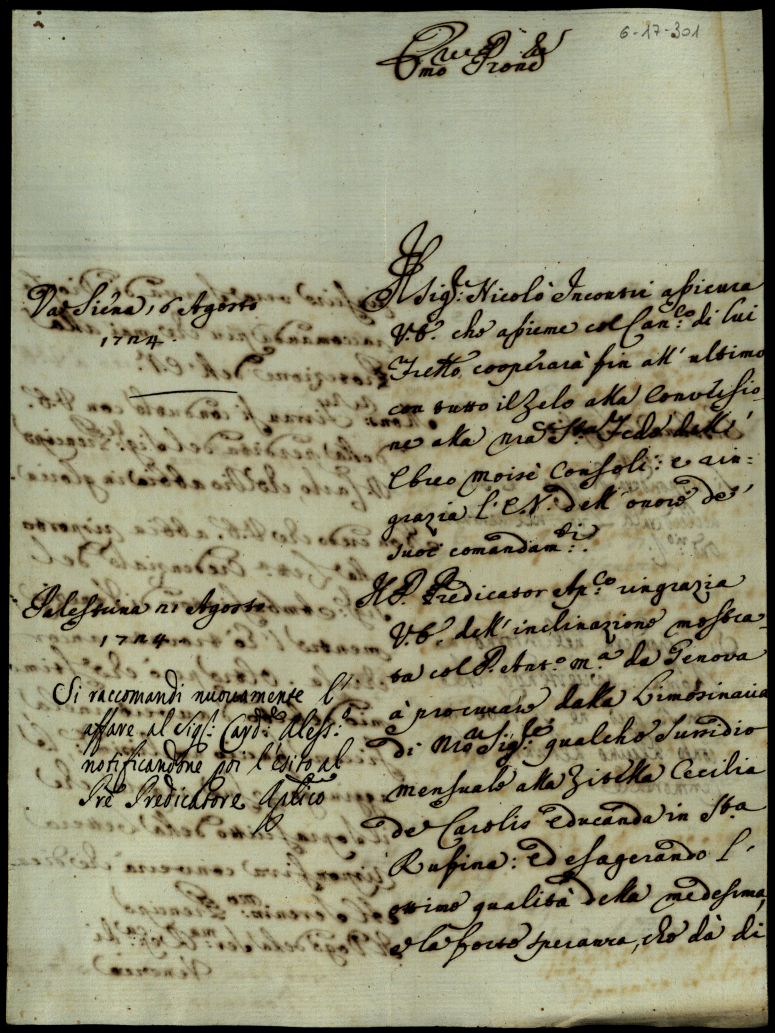 6-17-301
Em.mo Prone
Da Siena, 6 Agosto
1724.
Il Sig.r Nicolò Incontri assicura
V.E. che assieme col Can.co di lui
Frello cooperarà fin all' ultimo
con tutto il Zelo alla Conversio-
ne alla nra S.ta Fede dell'
Ebreo Moisè Consoli: e rin-
grazia l'E.V. dell' onore de'
suoi comandam.ti.
Palestrina 21 Agosto
1724
Il P. Predicator Ap.co ringrazia
V.E. dell' inclinazione mostra-
ta col P. Ant.o M.a da Genova
à procurare dalla Limosinaria
di Nro Sig.re qualche sussidio
mensuale alla Zitella Cecilia
de Carolis educanda in S.ta
Rufina: ed esagerando l'
ottime qualità della medesima,
e la forte speranza, che dà di
Si raccomandi nuovamente l'
affare al Sig.r Card.le Aless.o
notificandone poi l'esito al
Pre Predicatore Aplico